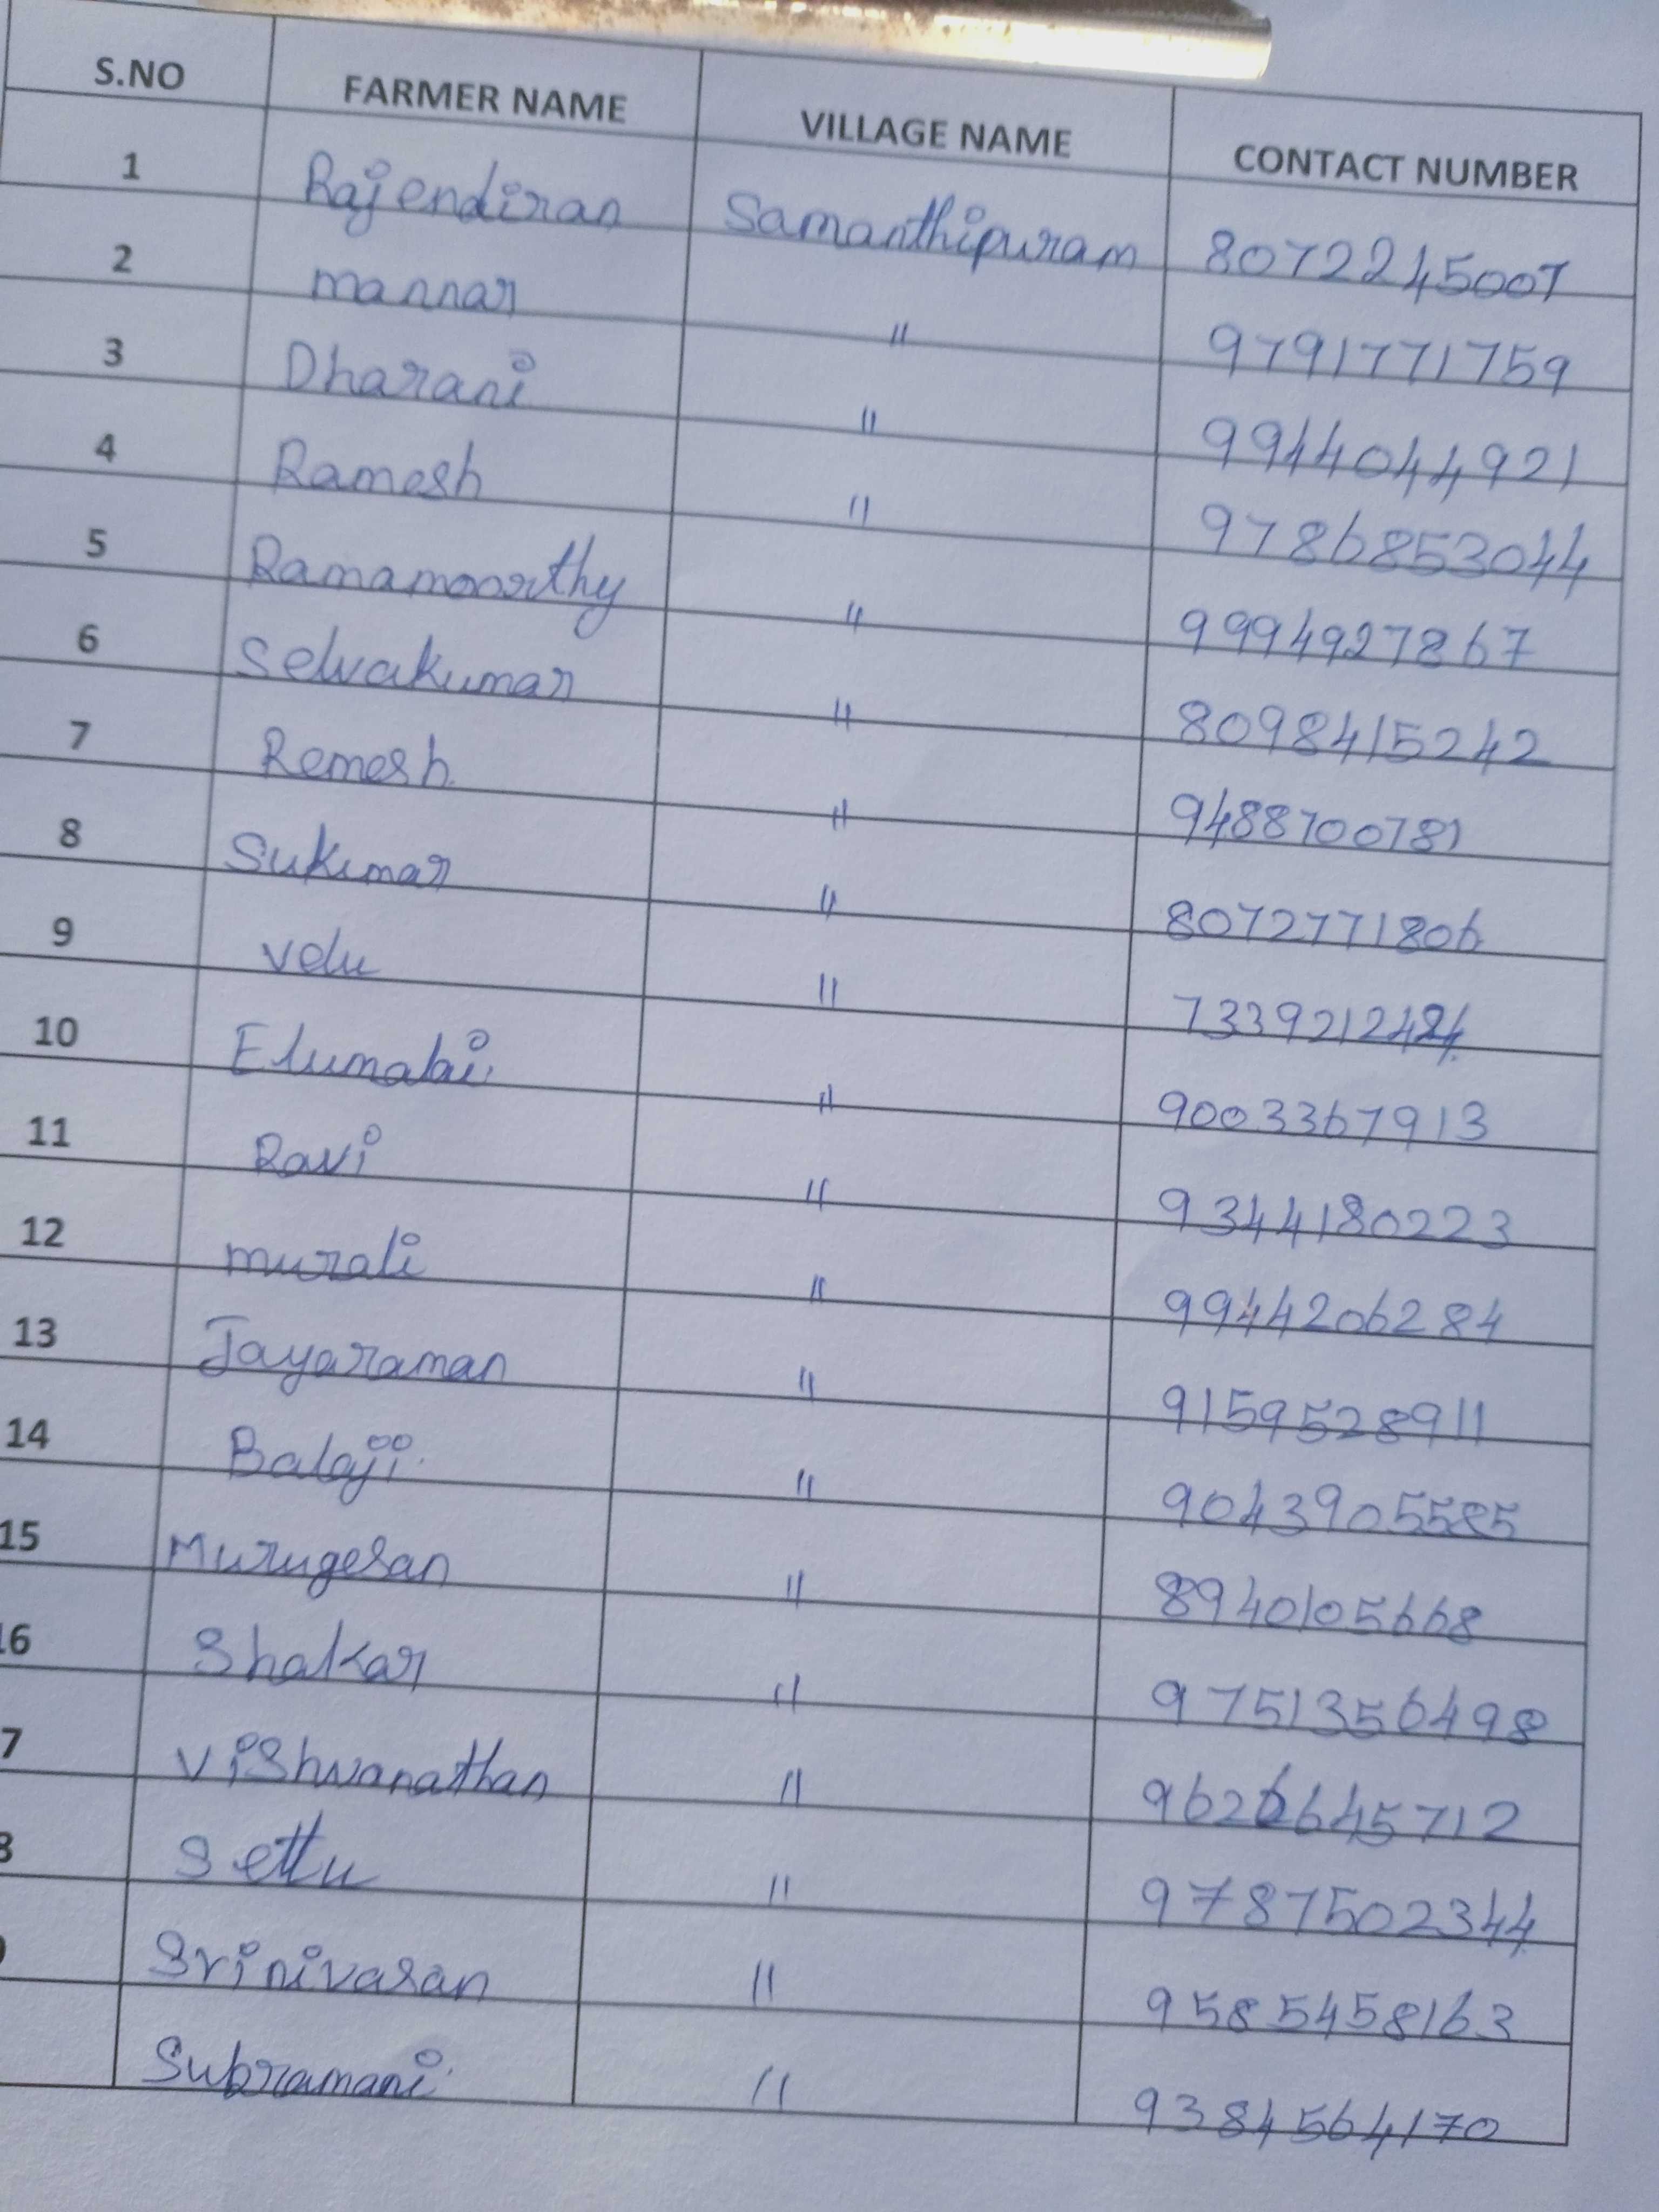 S.NO FARMER NAME VILLAGE NAME CONTACT NUMBER
1 Rajendiran Samanthipuram 8072245007
2 mannar " 9791771759
3 Dharani " 9944044921
4 Ramesh " 9786853044
5 Ramamoorthy " 9994927867
6 Selvakumar " 8098415242
7 Remesh. " 9488700781
8 Sukumar " 8072771806
9 velu "
10 Elumalai. " 9003367913
11 Ravi " 9344180223
12 murali " 9944206284
13 Jayaraman " 9159528911
14 Balaji. " 9043905585
15 Murugesan " 8940105668
16 Shakar " 9751356498
7 Vishwanathan " 9626645712
8 Settu " 9787502344
Srinivasan " 9585458163
Subramani. " 9384564170